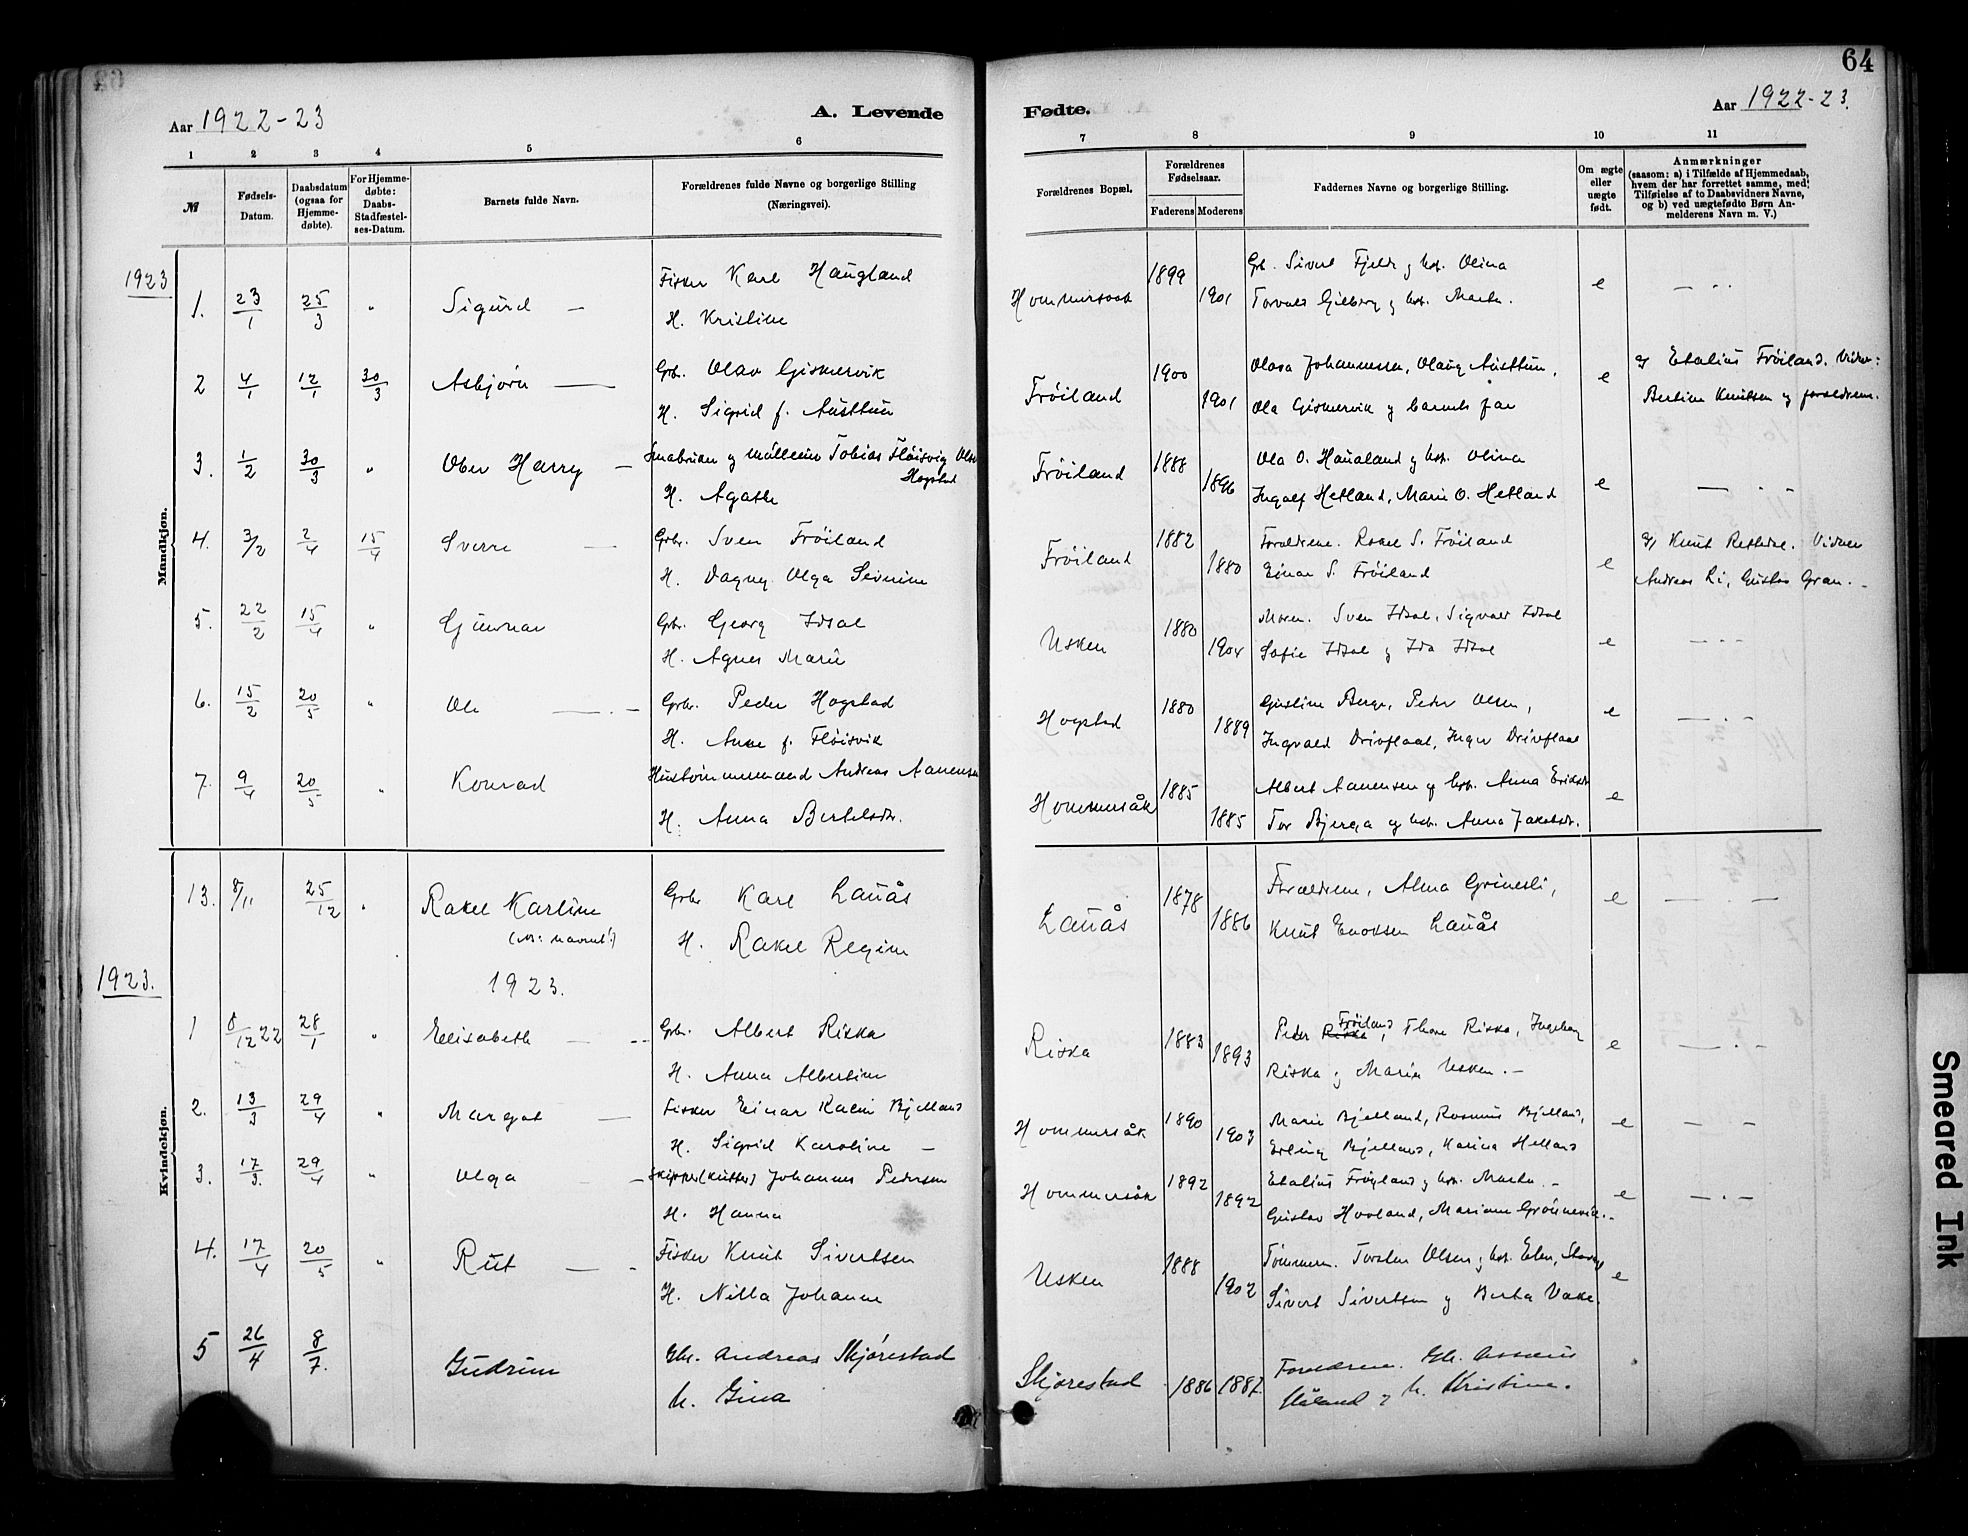 64
Aar 1922-23
A. Levende
Fødte.
Aar 1922-23.
1 2 3 4 5 6 7 8 9 10 11
№
Fødsels-Datum.
Daabsdatum (ogsaa for Hjemme-døbte).
For Hjemme-døbte: Daabs-Stadfæstel-ses-Datum.
Barnets fulde Navn.
Forældrenes fulde Navne og borgerlige Stilling (Næringsvei).
Forældrenes Bopæl.
Forældrenes Fødselsaar.
Faderens Moderens
Faddernes Navne og borgerlige Stilling.
Om ægte eller uægte født.
Anmærkninger
(saasom: a) i Tilfælde af Hjemmedaab,
hvem der har forrettet samme, med
Tilføielse af to Daabsvidners Navne,
og b) ved uægtefødte Børn An-
melderens Navn m. V.)
1923
Mandkjøn.
1. 23/1 25/3 " Sigurd — Fisker Karl Haugland
H. Kristine
1899 1901 Gb. Sivert Fjelde og hst. Olina
Torvald Gjeberg og hst. Marta. e — . .
2 4/1 12/1 30/3 Asbjørn — Grbr. Olav Giskervik
H. Sigrid f. Austtun
Frøiland 1900 1901 Olava Johannessen, Olaug Austtun,
Ola Giskervik og barnets far e
v/ Etalius Frøiland. Vidner:
Bertine Knutsen og foreldrene.
3. 1/2 30/3 " Harry — Tobias Fløisvig Olsen
Hogstad
H. Agathe
Frøiland 1888 1896 Ola O. Haualand og hst. Olina
Ingolf Hetland, Marie O. Hetland e — . -
4. 3/2 2/4 15/4 Sverre — Grbr. Sven Frøiland
H. Dagny Olga Severine
Frøiland 1882 1880 Forældrene. Rakel S. Frøiland
Einar S. Frøiland e
v/ Knut Vidner
Andreas Li, Gustav Gran. -
5. 22/2 15/4 " Gunnar Grbr. Georg Idsal
H. Agnes Marie
Usken 1880 1904 Moren. Sven Idsal, Sigvald Idsal
Sofie Idsal og Ida Idsal e — . —
6. 15/2 20/5 " Ole — . - Grbr. Peder Hogstad
H. Anne f. Fløisvik
Hogstad 1880 1889 Gustine Berge, Peter Olsen,
Ingvald Drivflaat, Inger Drivflaat e — . -
7. 9/4 20/5 " Konrad Hustømmermand Andreas Aanensen
H. Anna Bertelsdr.
Hommersåk 1885 1885 Albert Aanensen og hst. Anna Eriksdr.
Tor Bjerga og hst. Anna Jakobsdr. e
Kvindekjøn.
13. 8/11 25/12 " Rakel Karline Grbr Karl Lauås
H. Rakel Regine
Lauås 1878 1886 Forældrene, Alma Grinesli,
Knut Enoksen Lauås e — . —
1923.
1923.
1 8/12 22 28/1 " Elisabeth — -- Grbr. Albert Riska
H. Anna Albertine
Riska 1883 1893 Peder Riska Frøiland, Thore Riska, Ingeborg
Riska og Maria Usken. - e — . -
2. 13/3 29/4 " Margot — Fisker Einar Bjelland
H. Sigrid Karoline —
Hommersåk 1890 1903 Marie Bjelland, Rasmus Bjelland,
Erling Bjelland, Karina Helland e — -
3. 17/3. 29/4 " Olga — Skipper (kutter) Johannes Pedersen
H. Hanna
Hommersåk 1892 1892 Etalius Frøyland og hst. Marta. -
Gustav Hovland, Mariane Grønnevik. - e — . -
4. 17/4 20/5 " Rut — - Fisker Knut Sivertsen
H. Nilla Johanne
Usken 1888 1902 Tømmerm. Torsten Olsen og hst. Elen,
Sivert Sivertsen og Berta Vake. e
5 26/4 8/7. Gudrun Gbr. Andreas Skjørestad
h. Gina
Skjørestad 1886 1887. Foreldrene. Gbr.
og h. Kristine.
Smeared Ink